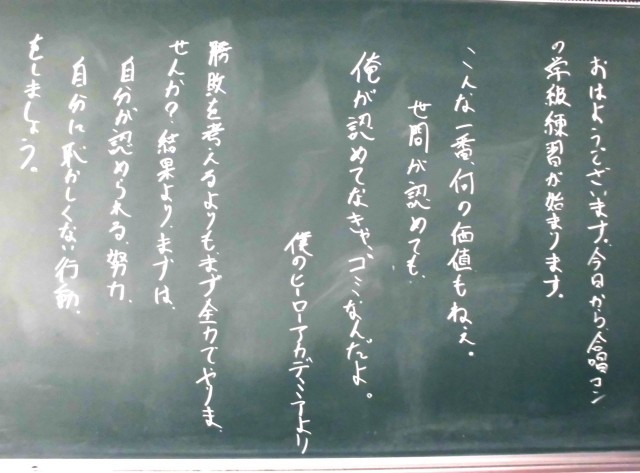 おはようございます。今日から、合唱コン
の学級練習が始まります。
こんな一番、何の価値もねぇ。
世間が認めても、
俺が認めてなきゃ、ゴミなんだよ。
僕のヒーローアカデミアより
勝敗を考えるよりも、まず全力でやりま
せんか？結果より、まずは、
自分が認められる、努力、
自分に恥かしくない行動、
をしましょう。